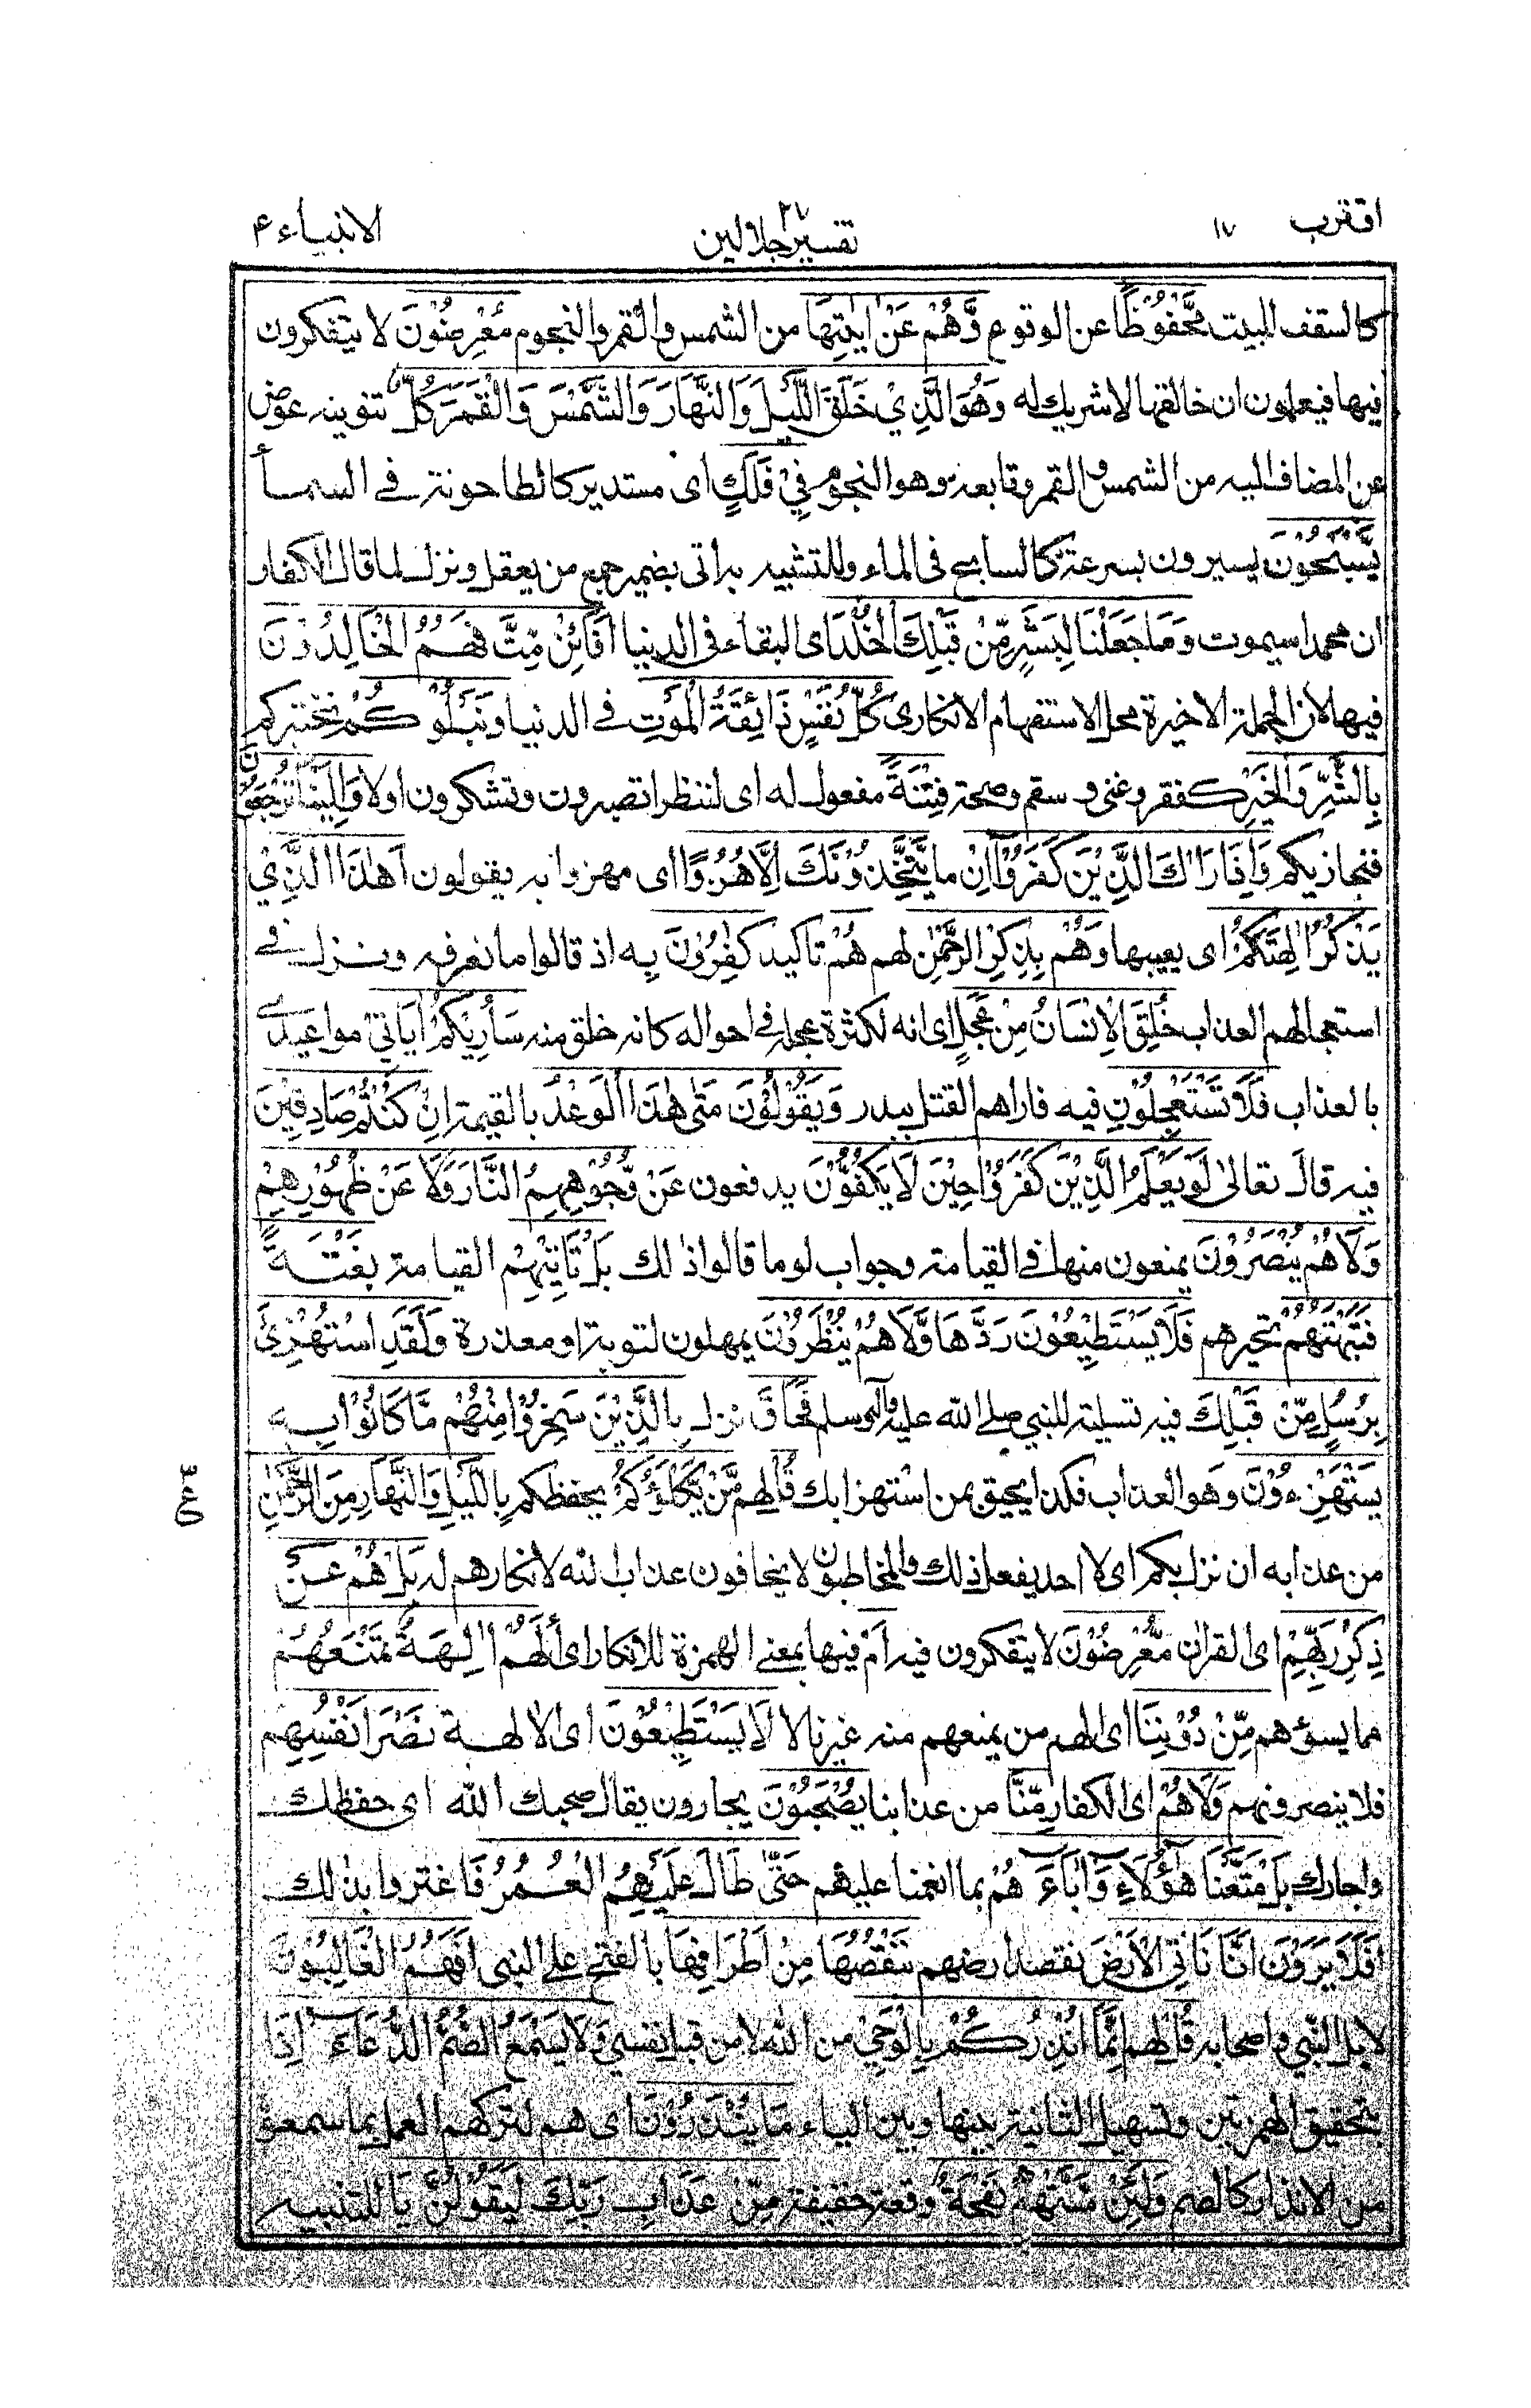 اقترب ١٧
٢٧ تفسير جلالين
الانبياء ٤
كالسقف للبيت مَّحْفُوْظًا عن الوقوع وَّهُمْ عَنْ اٰيٰتِهَا من الشمس والقمر والنجوم مُعْرِضُوْنَ لا يتفكرون
فيها فيعلمون ان خالقها لا شريك له وَهُوَ الَّذِيْ خَلَقَ اللَّيْلَ وَالنَّهَارَ وَالشَّمْسَ وَالْقَمَرَ كُلٌّ تنوينه عوض
عن المضاف اليه من الشمس والقمر وتابعه وهو النجوم فِيْ فَلَكٍ اى مستدير كالطاحونة فے السمأ
يَّسْبَحُوْنَ يسيرون بسرعة كالسابح فى الماء وللتشبيه به اتى بضمير جمع من يعقل ونزل لما قال الكفار
ان محمدا سيموت وَمَا جَعَلْنَا لِبَشَرٍ مِّنْ قَبْلِكَ الْخُلْدَ اى البقاء فى الدنيا اَفَائِنْ مِّتَّ فَهُمُ الْخَالِدُوْنَ
فيها لا فالجملة الاخيرة محل الاستفهام الانكارى كُلُّ نَفْسٍ ذَائِقَةُ الْمَوْتِ فے الدنيا وَنَبْلُوْكُمْ نختبركم
بِالشَّرِّ وَالْخَيْرِ كفقر وغنى و سقم وصحة فِتْنَةً مفعول له اى لننظر اتصبرون وتشكرون اولا وَاِلَيْنَا تُرْجَعُوْنَ
فنجازيكم وَاِذَا رَاٰكَ الَّذِيْنَ كَفَرُوْٓا اِنْ ما يَّتَّخِذُوْنَكَ اِلَّا هُزُوًا اى مهزوا به يقولون اَهٰذَا الَّذِيْ
يَذْكُرُ اٰلِهَتَكُمْ اى يعيبها وَهُمْ بِذِكْرِ الرَّحْمٰنِ لهم هُمْ تاكيد كٰفِرُوْنَ به اذ قالوا ما نعرفه ونزل فے
استعجالهم العذاب خُلِقَ الْاِنْسَانُ مِنْ عَجَلٍ اى انه لكثرة عجله فے احواله كانه خلق منه سَاُرِيْكُمْ اٰيَاتِيْ مواعيدے
بالعذاب فَلَا تَسْتَعْجِلُوْنِ فيه فاراهم القتل ببدر وَيَقُوْلُوْنَ مَتٰى هٰذَا الْوَعْدُ بالقيمة اِنْ كُنْتُمْ صَادِقِيْنَ
فيه قال تعالى لَوْ يَعْلَمُ الَّذِيْنَ كَفَرُوْا حِيْنَ لَا يَكُفُّوْنَ يدفعون عَنْ وُّجُوْهِهِمُ النَّارَ وَلَا عَنْ ظُهُوْرِهِمْ
وَلَا هُمْ يُنْصَرُوْنَ يمنعون منها فے القيامة وجواب لو ما قالوا ذلك بَلْ تَاْتِيْهِمْ القيامة بَغْتَةً
فَتَبْهَتُهُمْ تحيرهم فَلَا يَسْتَطِيْعُوْنَ رَدَّهَا وَلَا هُمْ يُنْظَرُوْنَ يمهلون لتوبة او معذرة وَلَقَدِ اسْتُهْزِئَ
بِرُسُلٍ مِّنْ قَبْلِكَ فيه تسلية للنبى صلے الله عليه وآله وسلم فَحَاقَ نزل بِالَّذِيْنَ سَخِرُوْا مِنْهُمْ مَّا كَانُوْا بِهٖ
يَسْتَهْزِءُوْنَ وهو العذاب فكذا يحيق بمن استهزا بك قُلْ لهم مَّنْ يَكْلَؤُكُمْ يحفظكم بِاللَّيْلِ وَالنَّهَارِ مِنَ الرَّحْمٰنِ
من عذابه ان نزل بكم اى لا احد يفعل ذلك والمخاطبون لا يخافون عذاب الله لانكارهم له بَلْ هُمْ عَنْ
ذِكْرِ رَبِّهِمْ اى القران مُّعْرِضُوْنَ لا يتفكرون فيه اَمْ فيها بمعنے الهمزة للانكار اى اَلَهُمْ اٰلِهَةٌ تَمْنَعُهُمْ
مما يسؤهم مِّنْ دُوْنِنَا اى الهم من يمنعهم منه غيرنا لا لَا يَسْتَطِيْعُوْنَ اى الالهة نَصْرَ اَنْفُسِهِمْ
فلا ينصرونهم وَلَا هُمْ اى الكفار مِّنَّا من عذابنا يُصْحَبُوْنَ يجارون يقال صحبك الله اى حفظك
واجارك بَلْ مَتَّعْنَا هٰٓؤُلَاءِ وَاٰبَآءَهُمْ بما انعمنا عليهم حَتّٰى طَالَ عَلَيْهِمُ الْعُمُرُ فاغتروا بذلك
اَفَلَا يَرَوْنَ اَنَّا نَاْتِي الْاَرْضَ نقصد ارضهم نَنْقُصُهَا مِنْ اَطْرَافِهَا بالفتح على النبى اَفَهُمُ الْغَالِبُوْنَ
لا بل النبي واصحابه قُلْ لهم اِنَّمَا اُنْذِرُكُمْ بِالْوَحْيِ من الله لا من قبل نفسي وَلَا يَسْمَعُ الصُّمُّ الدُّعَآءَ اِذَا
بتحقيق الهمزتين وتسهيل الثانية بينها وبين الياء مَا يُنْذَرُوْنَ اى هم لتركهم العمل بما سمعوه
من الانذار كالصم وَلَئِنْ مَّسَّتْهُمْ نَفْحَةٌ وقعة خفيفة مِّنْ عَذَابِ رَبِّكَ لَيَقُوْلُنَّ يَا للتنبيه